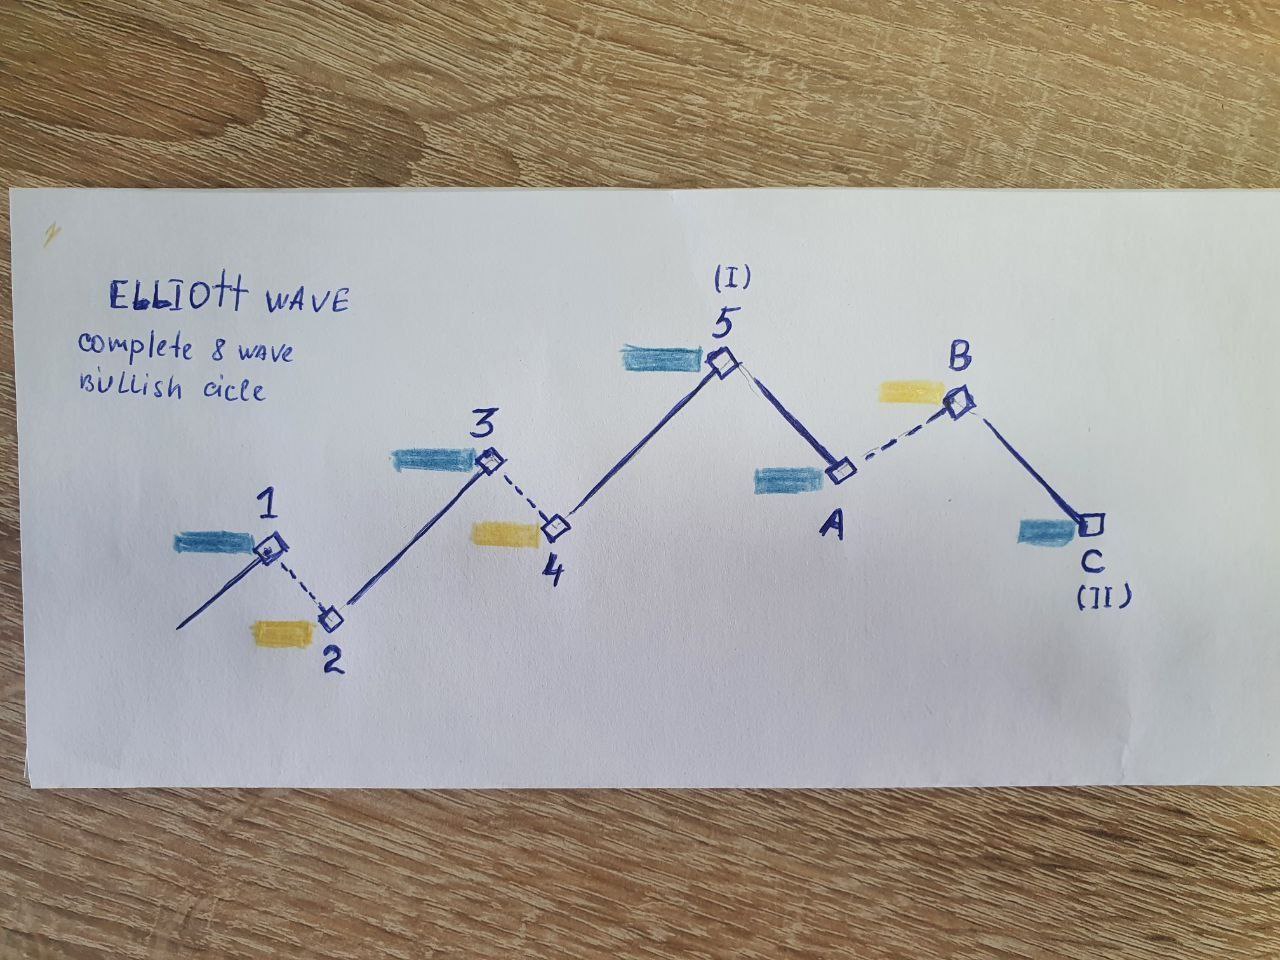 ELLIOtt WAVE
complete 8 wave
Bullish cicle
(I)
5
B
3
1
A
4
C
(II)
2